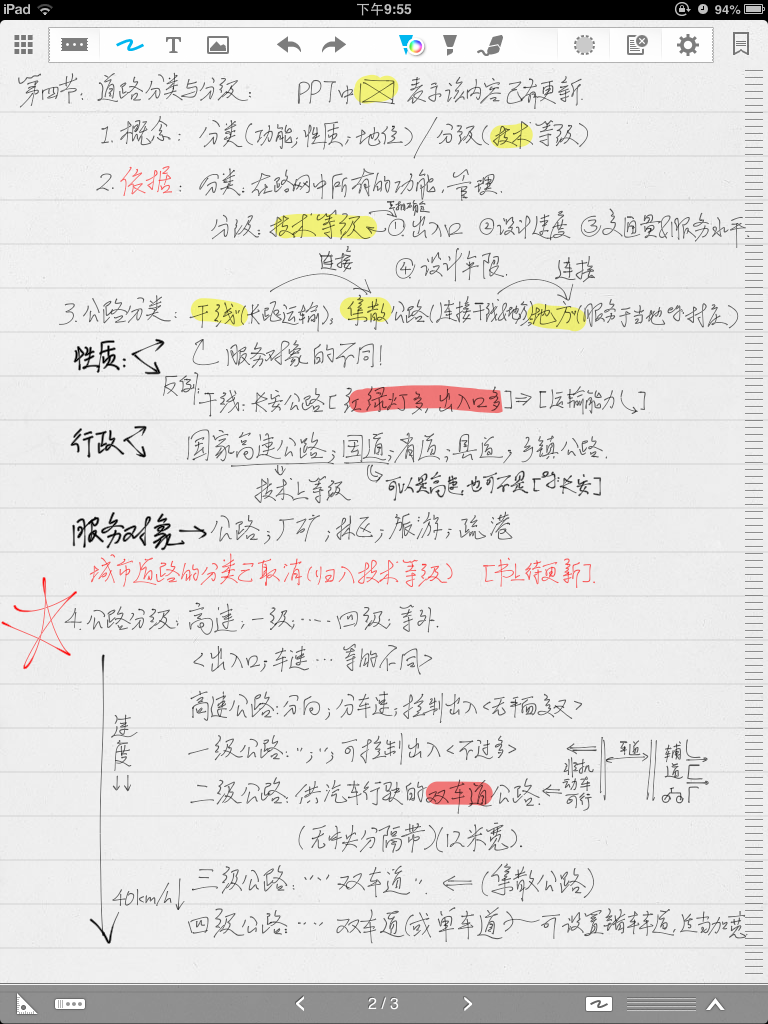 iPad 下午9:55 94%
T
第四节：道路分类与分级： PPT中 表示该内容已有更新.
1. 概念： 分类(功能,性质,地位)/分级(技术等级)
2. 依据： 分类：在路网中所有的功能,管理.
分级：技术等级 ①出入口 ②设计速度 ③交通量&服务水平.
连接 ④设计年限. 连接
3. 公路分类：干线(长距运输), 集散公路(连接干线&地方) 地方(服务于当地 村庄)
性质： 服务对象的不同!
反例： 干线：长安公路[红绿灯多,出入口多]⇒[运输能力↓]
行政 国家高速公路；国道；省道；县道；乡镇公路.
技术上等级 可以是高速,也可不是[ 长安]
服务对象→公路；厂矿；林区；旅游；疏港
城市道路的分类已取消(归入技术等级) [书上待更新].
4. 公路分级：高速；一级；…… 四级；等外.
<出入口,车速…等的不同>
高速公路：分向；分车速；控制出入<无平面交叉>
速度↓↓
一级公路：〃；〃；可控制出入<不过多>
车道 辅道
二级公路：供汽车行驶的双车道公路. ⇐ 非机动车可行
(无中央分隔带)(12米宽).
40km/h↓
三级公路：〃〃 双车道〃. ⇐ (集散公路)
四级公路：〃〃 双车道(或单车道) 可设置错车车道,适当加宽
2 / 3